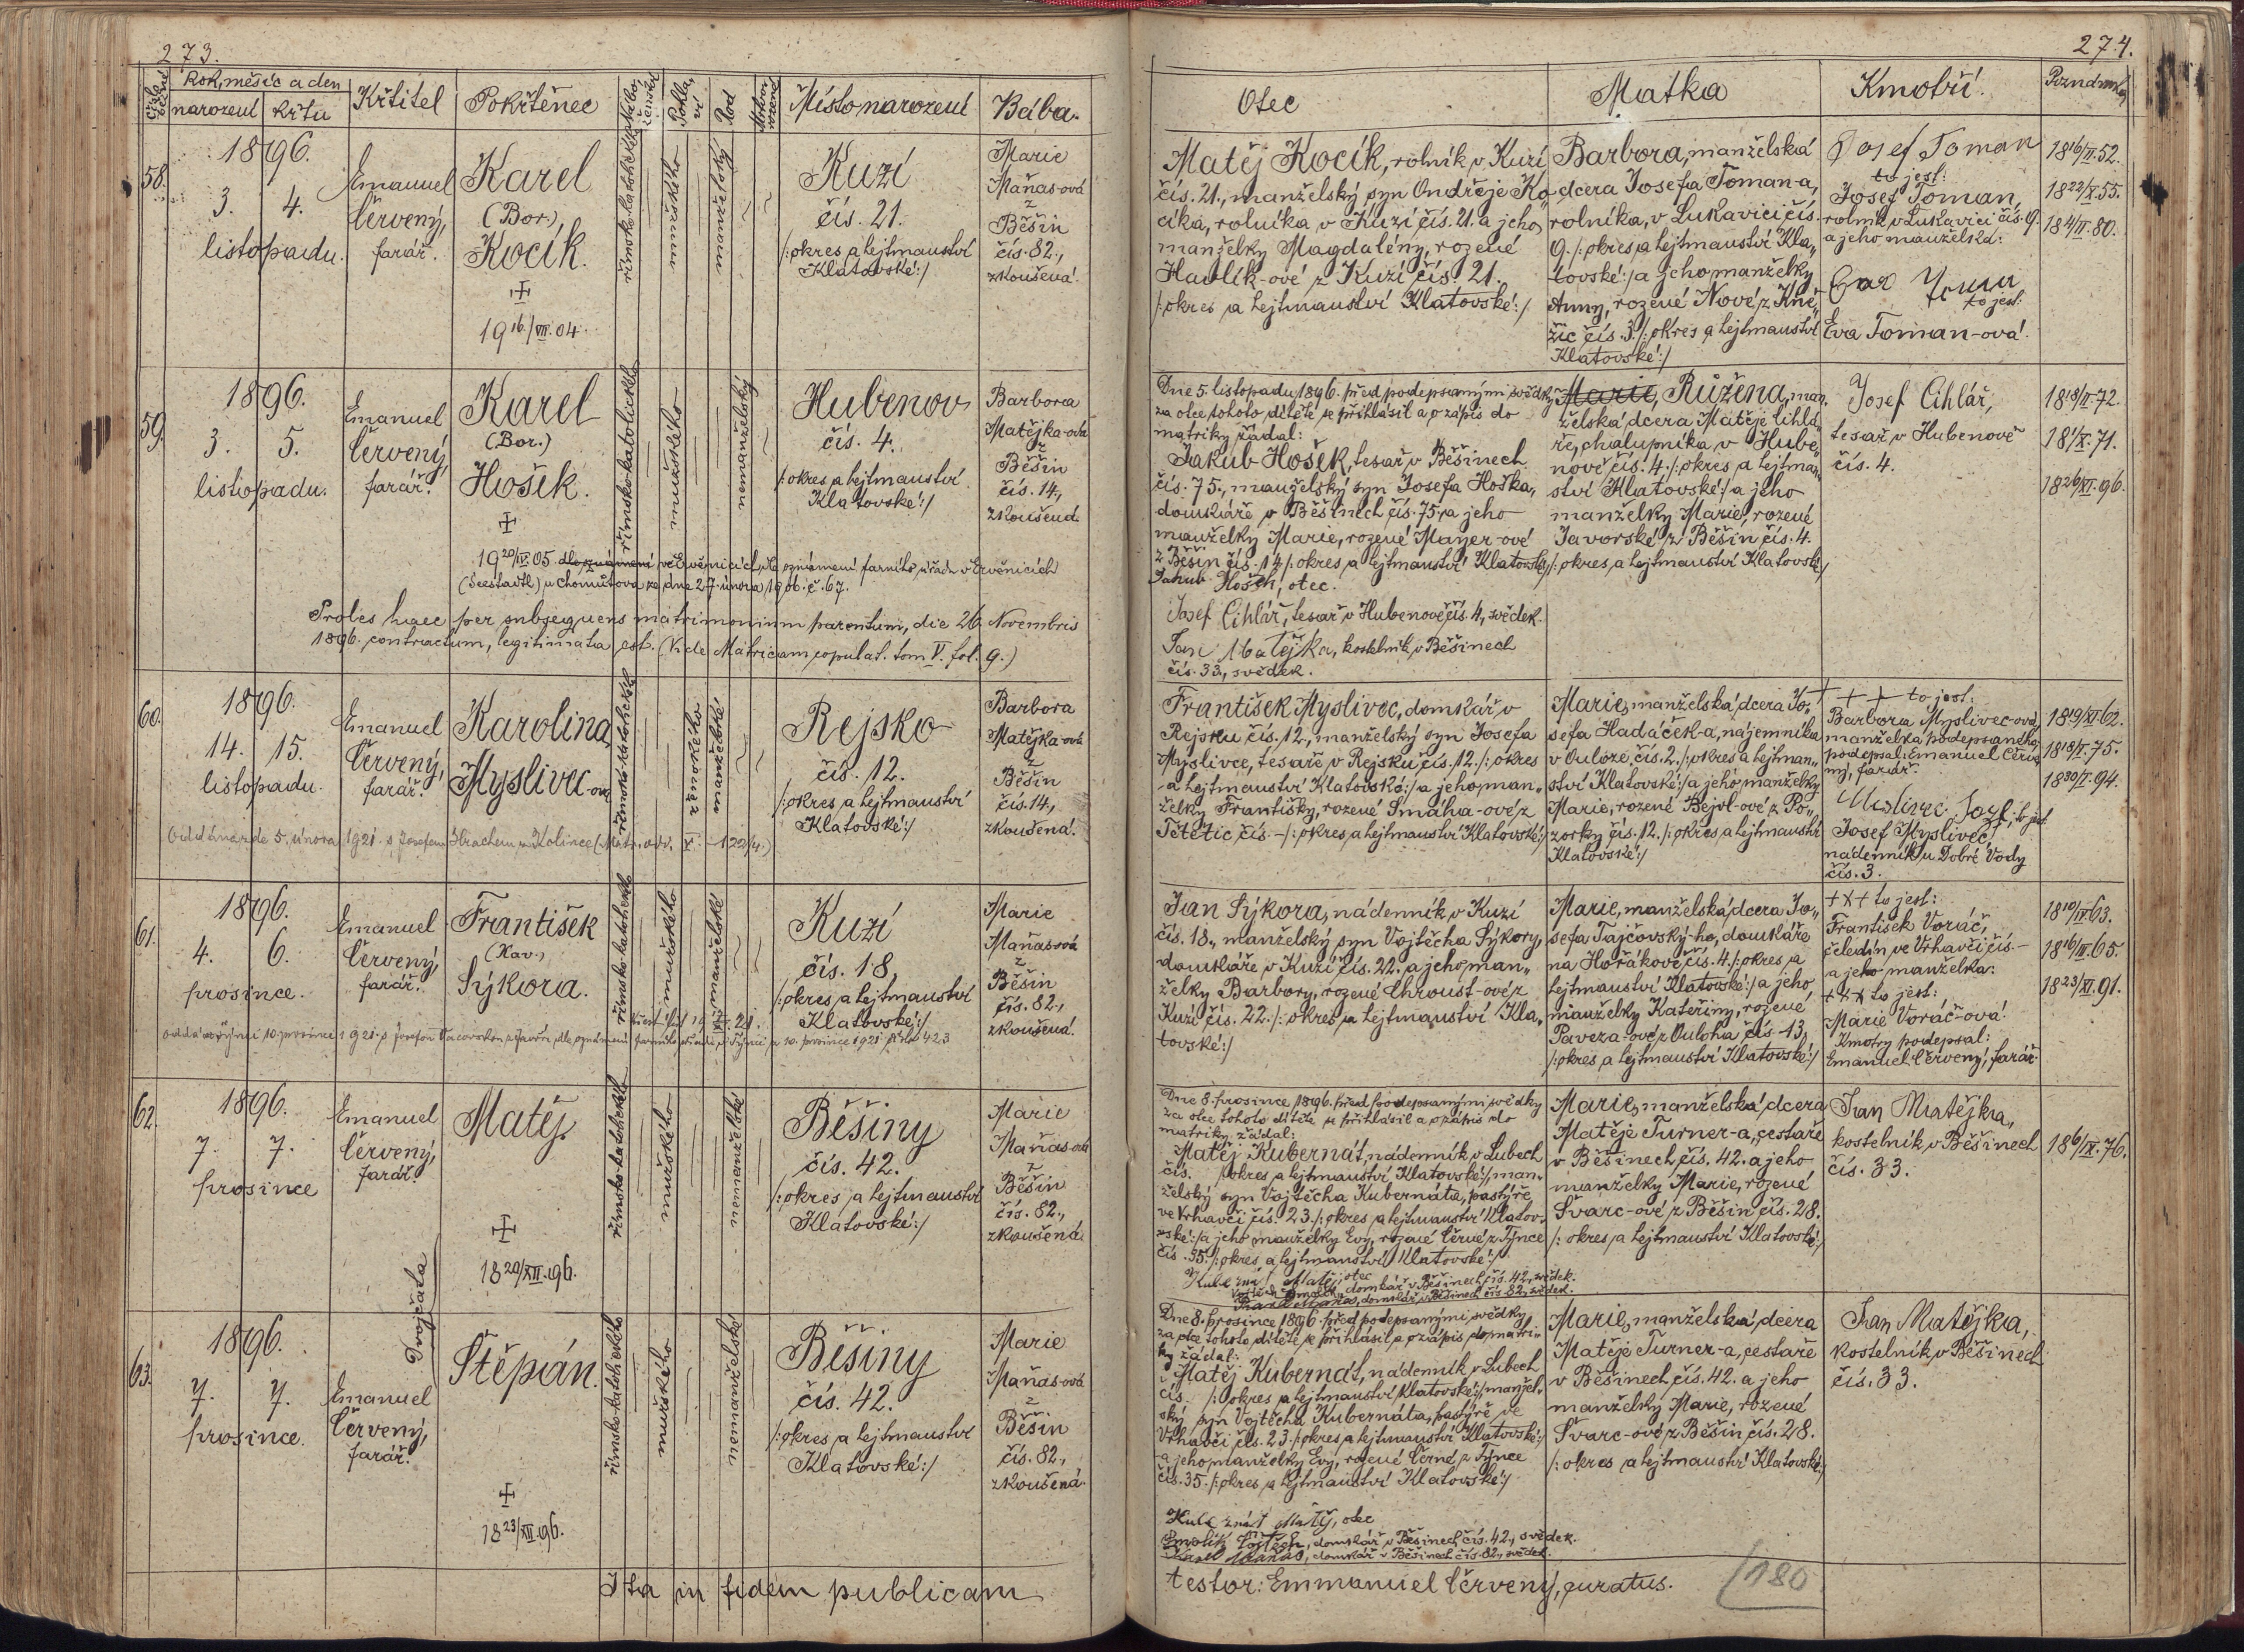 273.
Číslo běžné
Rok, měsíc a den
narození křtu
Křtitel
Pokřtěnec
Pohlaví
Rod
Místo narození
Bába.
58.
1896.
3. 4.
listopadu.
Emanuel
Červený,
farář.
Karel
(Bor.)
Kocík.
19 16/VII. 04.
římsko-katolického
mužského
manželský
Kuzí
čís. 21.
/:okres a hejtmanství
Klatovské:/
Marie
Maňas-ová
z
Běšin
čís. 82.,
zkoušená.
59.
1896.
3. 5.
listopadu.
Emanuel
Červený,
farář.
Karel
(Bor.)
Hošek.
římskokatolického
mužského
nemanželský
Hubenov
čís. 4.
/:okres a hejtmanství
Klatovské:/
Barbora
Matějka-ová
z
Běšin
čís. 14.,
zkoušená
19 20/IV. 05. dle oznámení ve Ervěnicích, dle oznámení farního úřadu v Ervěnicích
(Seestadtl) u Chomútova ze dne 27. února 1906. č. 67.
Proles haec per subsequens matrimonium parentum, die 26. Novembris
1896. contractum, legitimata est. (Vide Matricam copulat. tom V. fol. 9.)
60.
1896.
14. 15.
listopadu.
Emanuel
Červený,
farář.
Karolina
Myslivec-ová
římsko-katolického
ženského
manželské
Rejsko
čís. 12.
/:okres a hejtmanství
Klatovské:/
Barbora
Matějka-ová
z
Běšin
čís. 14.,
zkoušená.
Oddána dne 5. února 1921 s Josefem
61.
1896.
4. 6.
prosince.
Emanuel
Červený,
farář.
František
(Xav.)
Sýkora.
římsko-katolického
mužského
manželské
Kuzí
čís. 18.
/:okres a hejtmanství
Klatovské:/
Marie
Maňas-ová
z
Běšin
čís. 82.,
zkoušená.
62.
1896.
7. 7.
prosince
Emanuel
Červený,
farář.
Matěj.
18 20/XII. 96.
římsko-katolického
mužského
nemanželské
Běšiny
čís. 42.
/:okres a hejtmanství
Klatovské:/
Marie
Maňas-ová
z
Běšin
čís. 82.,
zkoušená
Dvojčata
63.
1896.
7. 7.
prosince.
Emanuel
Červený,
farář.
Štěpán.
18 23/XII. 96.
římsko-katolického
mužského
nemanželské
Běšiny
čís. 42.
/:okres a hejtmanství
Klatovské:/
Marie
Maňas-ová
z
Běšin
čís. 82.,
zkoušená.
Ita in fidem publicam
274.
Otec
Matka
Kmotři.
Poznámka
Matěj Kocík, rolník v Kuzí
čís. 21., manželský syn Ondřeje Ko-
cíka, rolníka v Kuzí čís. 21. a jeho
manželky Magdalény, rozené
Havlík-ové z Kuzí čís. 21.
/:okres a hejtmanství Klatovské:/
Barbora, manželská
dcera Josefa Toman-a,
rolníka, v Lukavici čís.
9. /:okres a hejtmanství Kla-
tovské:/ a jeho manželky
Anny, rozené Nové z Kně-
žic čís. 3. /:okres a hejtmanství
Klatovské:/
Josef Toman
to jest:
Josef Toman,
rolník v Lukavici čís. 9.
a jeho manželka:
Eva
to jest:
Eva Toman-ová.
18 16/II. 52.
18 22/X. 55.
18 4/II. 80.
Dne 5. listopadu 1896. před podepsanými svědky
za otce tohoto dítěte se přihlásil a o zápis do
matriky žádal:
Jakub Hošek, tesař v Běšinech
čís. 75., manželský syn Josefa Hoška,
domkáře v Běšinech čís. 75. a jeho
manželky Marie, rozené Mayer-ové
z Běšin čís. 14 /:okres a hejtmanství Klatovské:/
Jakub Hošek, otec.
Josef Cihlář, tesař v Hubenově čís. 4, svědek.
Jan Matějka, kostelník v Běšinech
čís. 33, svědek.
Marie, Růžena, man-
želská dcera Matěje Cihlá-
ře, chalupníka v Hube-
nově čís. 4. /:okres a hejtman-
ství Klatovské:/ a jeho
manželky Marie, rozené
Javorské z Běšin čís. 4.
/:okres a hejtmanství Klatovské:/
Josef Cihlář,
tesař v Hubenově
čís. 4.
18 18/II. 72.
18 1/X. 71.
18 26/XI. 96.
František Myslivec, domkář v
Rejsku čís. 12., manželský syn Josefa
Myslivce, tesaře v Rejsku čís. 12. /:okres
a hejtmanství Klatovské:/ a jeho man-
želky Františky, rozené Smáha-ové z
Tětětic čís. – /:okres a hejtmanství Klatovské:/
Marie, manželská dcera Jo-
sefa Hadáček-a, nájemníka
v Ouloze čís. 2. /:okres a hejtman-
ství Klatovské:/ a jeho manželky
Marie, rozené Bejvl-ové z Po-
zorky čís. 12. /:okres a hejtmanství
Klatovské:/
+++ to jest:
Barbora Myslivec-ová
manželka podepsaného,
podepsal: Emanuel Červe-
ný, farář.
Myslivec Jozf, to jest
Josef Myslivec,
nádenník u Dobré Vody
čís. 3.
18 19/XI. 62.
18 18/I. 75.
18 30/I. 94.
Jan Sýkora, nádenník v Kuzí
čís. 18., manželský syn Vojtěcha Sýkory,
domkáře v Kuzí čís. 22. a jeho man-
želky Barbory, rozené Chroust-ové z
Kuzí čís. 22. /:okres a hejtmanství Kla-
tovské:/
Marie, manželská dcera Jo-
sefa Tajčovský-ho, domkáře
na Hořákově čís. 4. /:okres a
hejtmanství Klatovské:/ a jeho
manželky Kateřiny, rozené
Paveza-ové z Oulohu čís. 13.
/:okres a hejtmanství Klatovské:/
+++ to jest:
František Voráč,
čeledín ve Vrhavči čís. –
a jeho manželka:
+++ to jest:
Marie Voráč-ová.
Kmotry podepsal:
Emanuel Červený, farář.
18 10/IV. 63.
18 16/III. 65.
18 23/XI. 91.
Dne 8. prosince 1896. před podepsanými svědky
za otce tohoto dítěte se přihlásil a o zápis do
matriky žádal:
Matěj Kubernát, nádenník v Lubech
čís. /:okres a hejtmanství Klatovské:/, man-
želský syn Vojtěcha Kubernáta, pastýře
ve Vrhavči čís. 23. /:okres a hejtmanství Klatov-
ské:/ a jeho manželky Evy, rozené Černé z Týnce
čís. 35. /:okres a hejtmanství Klatovské:/
Kubernát Matěj, otec
Vojtěch Smolík, domkář v Běšinech čís. 42., svědek.
Karel Maňas, domkář v Běšinech čís. 82., svědek.
Marie, manželská dcera
Matěje Turner-a, cestaře
v Běšinech čís. 42. a jeho
manželky Marie, rozené
Švarc-ové z Běšin čís. 28.
/:okres a hejtmanství Klatovské:/
Jan Matějka,
kostelník v Běšinech
čís. 33.
18 6/IX. 76.
Dne 8. prosince 1896. před podepsanými svědky
za otce tohoto dítěte se přihlásil a o zápis do matri-
ky žádal:
Matěj Kubernát, nádenník v Lubech
čís. /:okres a hejtmanství Klatovské:/, manžel-
ský syn Vojtěcha Kubernáta, pastýře ve
Vrhavči čís. 23. /:okres a hejtmanství Klatovské:/
a jeho manželky Evy, rozené Černé z Týnce
čís. 35. /:okres a hejtmanství Klatovské:/
Kubernát Matěj, otec
Smolík Vojtěch, domkář v Běšinech čís. 42., svědek.
Karel Maňas, domkář v Běšinech čís. 82., svědek.
Marie, manželská dcera
Matěje Turner-a, cestaře
v Běšinech čís. 42. a jeho
manželky Marie, rozené
Švarc-ové z Běšin čís. 28.
/:okres a hejtmanství Klatovské:/
Jan Matějka,
kostelník v Běšinech
čís. 33.
testor: Emmanuel Červený, curatus.
180